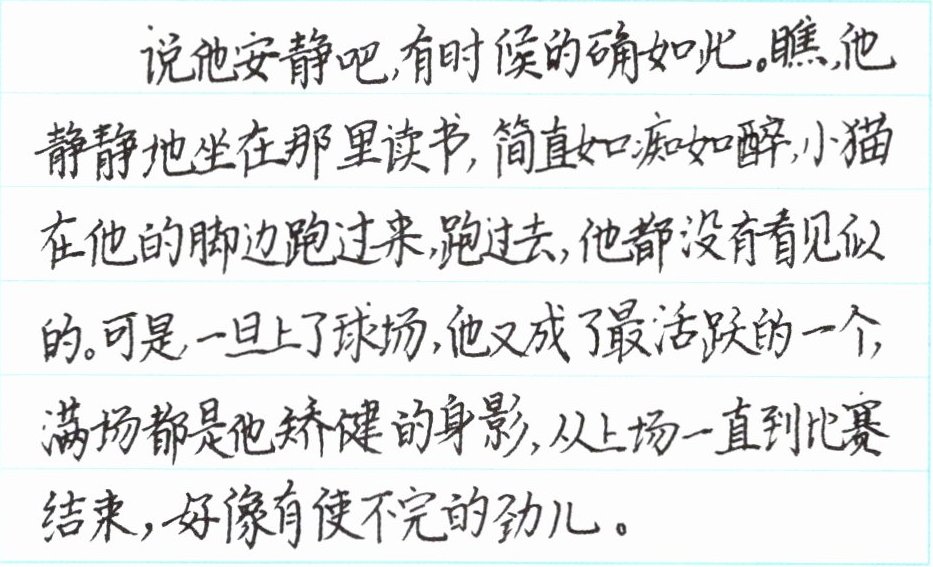 说他安静吧,有时候的确如此。瞧,他
静静地坐在那里读书,简直如痴如醉,小猫
在他的脚边跑过来,跑过去,他都没有看见似
的。可是,一旦上了球场,他又成了最活跃的一个,
满场都是他矫健的身影,从上场一直到比赛
结束,好像有使不完的劲儿。